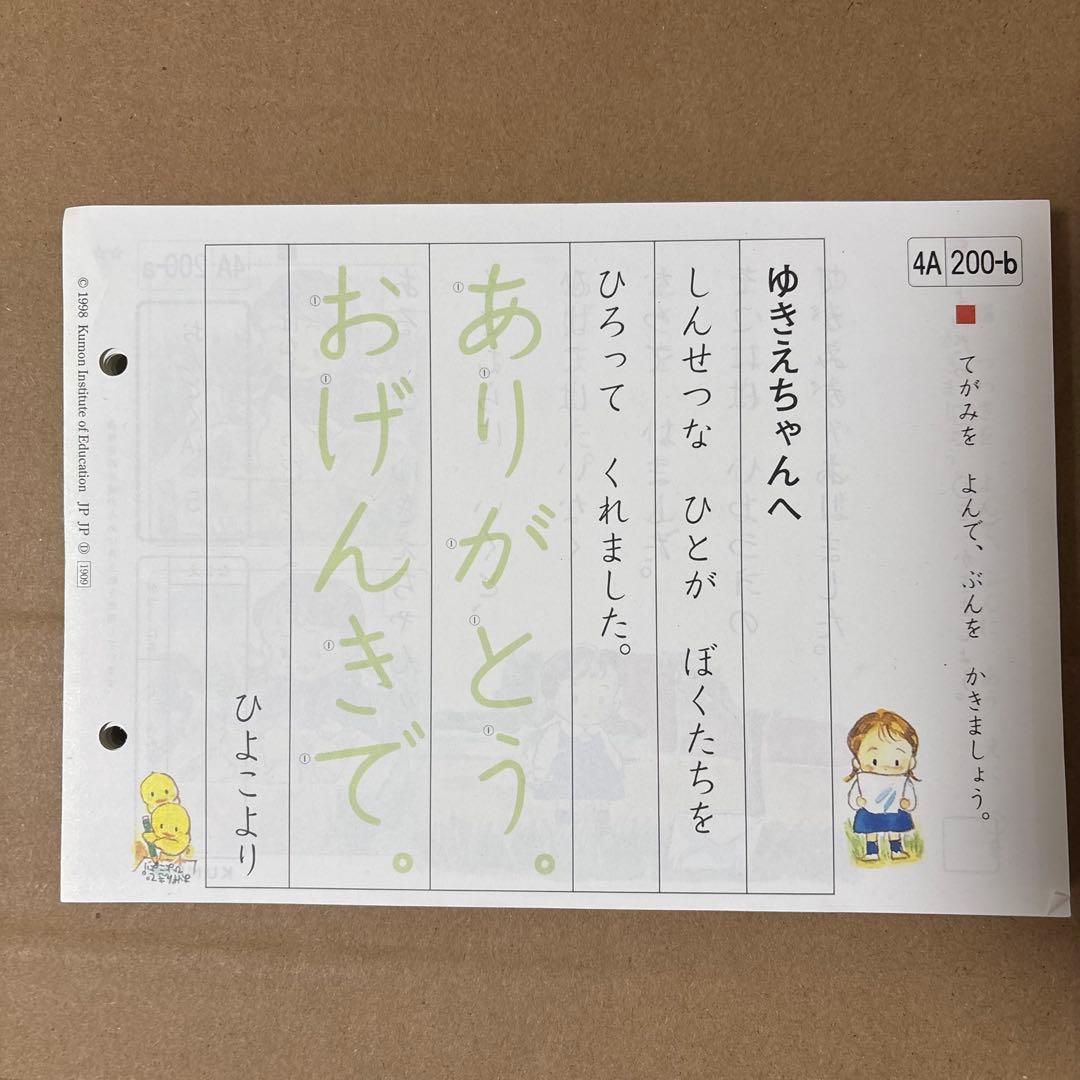 4A 200-b
■ てがみを よんで、ぶんを かきましょう。
ゆきえちゃんへ
しんせつな ひとが ぼくたちを
ひろって くれました。
ありがとう。
おげんきで。
ひよこより
おげんきで。
ひよこより
© 1998 Kumon Institute of Education JP JP Ⓓ 1909